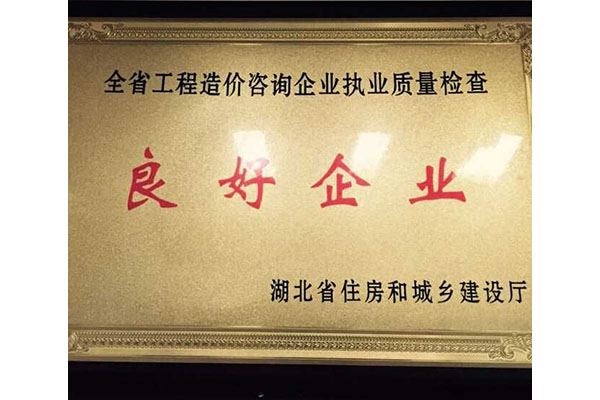 全省工程造价咨询企业执业质量检查
良好企业
湖北省住房和城乡建设厅